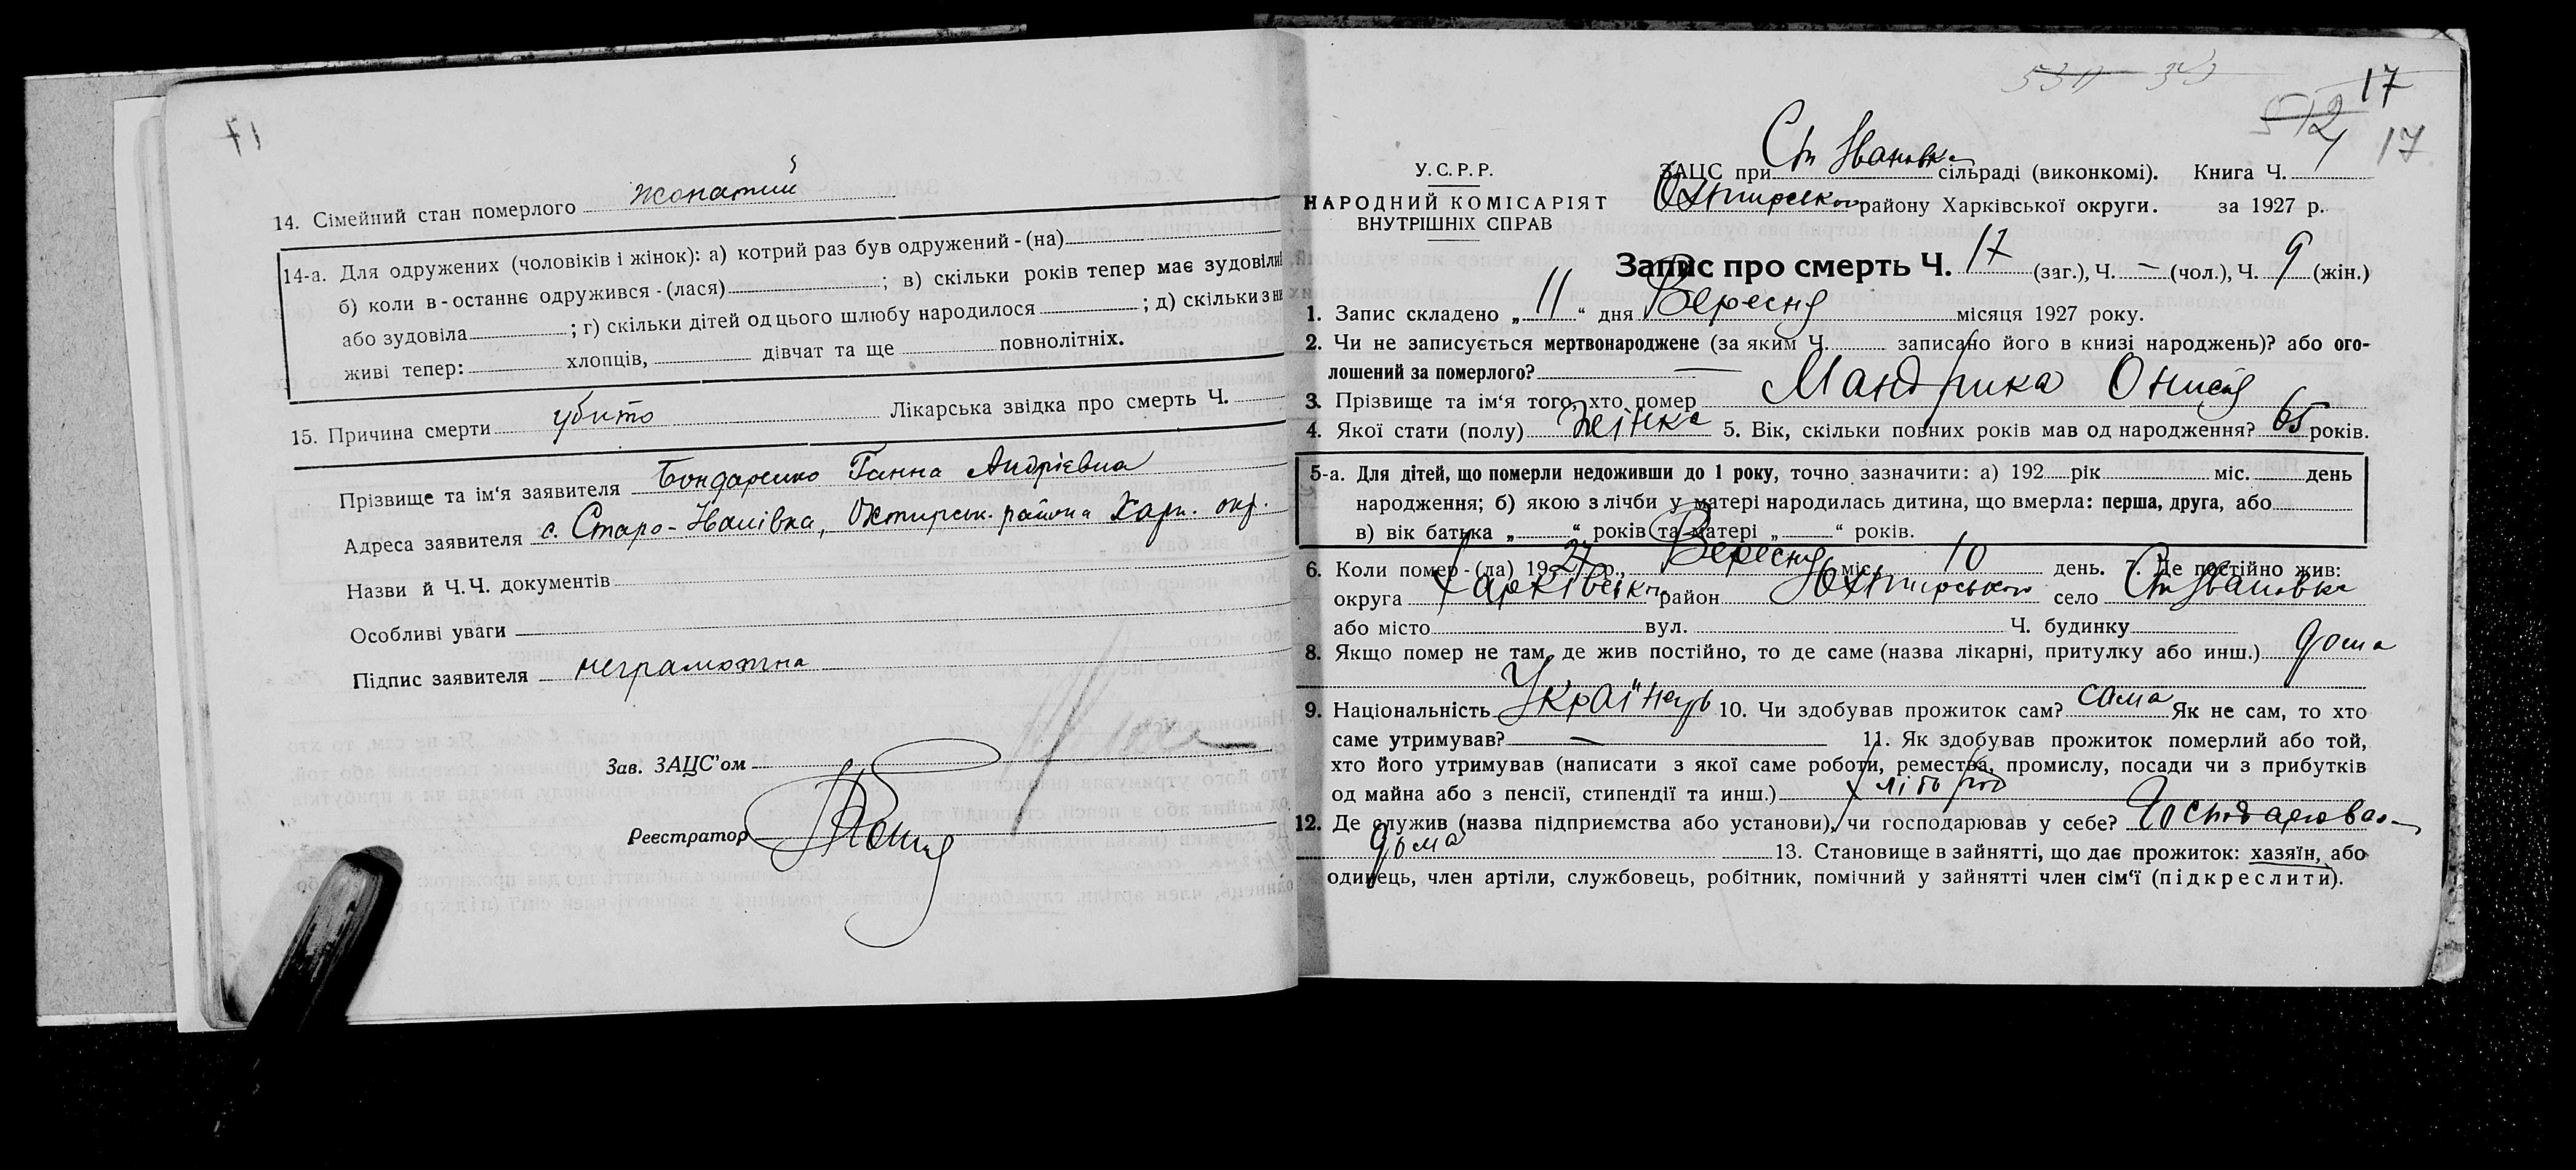 17
14. Сімейний стан померлого жонатий
14-а. Для одружених (чоловіків і жінок): а) котрий раз був одружений - (на)
б) коли в-останнє одружився - (лася) ; в) скільки років тепер має зудовілий
або зудовіла ; г) скільки дітей од цього шлюбу народилося ; д) скільки з них
живі тепер: хлопців, дівчат та ще повнолітніх.
15. Причина смерти убито Лікарська звідка про смерть Ч.
Прізвище та ім'я заявителя Бондаренко Ганна Андрієвна
Адреса заявителя с. Старо-Іванівка, Охтирськ. района Харк. окр.
Назви й Ч.Ч. документів
Особливі уваги
Підпис заявителя неграмотна
Зав. ЗАЦС'ом
Реєстратор
17
512
17
У.С.Р.Р.
НАРОДНИЙ КОМІСАРІЯТ
ВНУТРІШНІХ СПРАВ
ЗАЦС при Ст Ивановка сільраді (виконкомі). Книга Ч. 1
Охтирського району Харківської округи. за 1927 р.
Запис про смерть Ч. 17 (заг.), Ч. — (чол.), Ч. 9 (жін.)
1. Запис складено „ 11 “ дня Вересня місяця 1927 року.
2. Чи не записується мертвонароджене (за яким Ч. записано його в книзі народжень)? або ого-
лошений за померлого? —
3. Прізвище та ім'я того, хто помер Мандрика Онисія
4. Якої стати (полу) жінка 5. Вік, скільки повних років мав од народження? 65 років.
5-а. Для дітей, що померли недоживши до 1 року, точно зазначити: а) 192 рік міс. день
народження; б) якою з лічби у матері народилась дитина, що вмерла: перша, друга, або
в) вік батька „ “ років та матері „ “ років.
6. Коли помер - (ла) 1927 р., Вересня міс. 10 день. 7. Де постійно жив:
округа Харківського район Охтирського село Ст Ивановка
або місто вул. Ч. будинку
8. Якщо помер не там, де жив постійно, то де саме (назва лікарні, притулку або инш.) дома
9. Національність Українець 10. Чи здобував прожиток сам? сама Як не сам, то хто
саме утримував? — 11. Як здобував прожиток померлий або той,
хто його утримував (написати з якої саме роботи, ремества, промислу, посади чи з прибутків
од майна або з пенсії, стипендії та инш.) хлібороб
12. Де служив (назва підприємства або установи), чи господарював у себе? Господарювал
дома 13. Становище в зайнятті, що дає прожиток: хазяїн, або
одинець, член артіли, службовець, робітник, помічний у зайнятті член сім'ї (підкреслити).